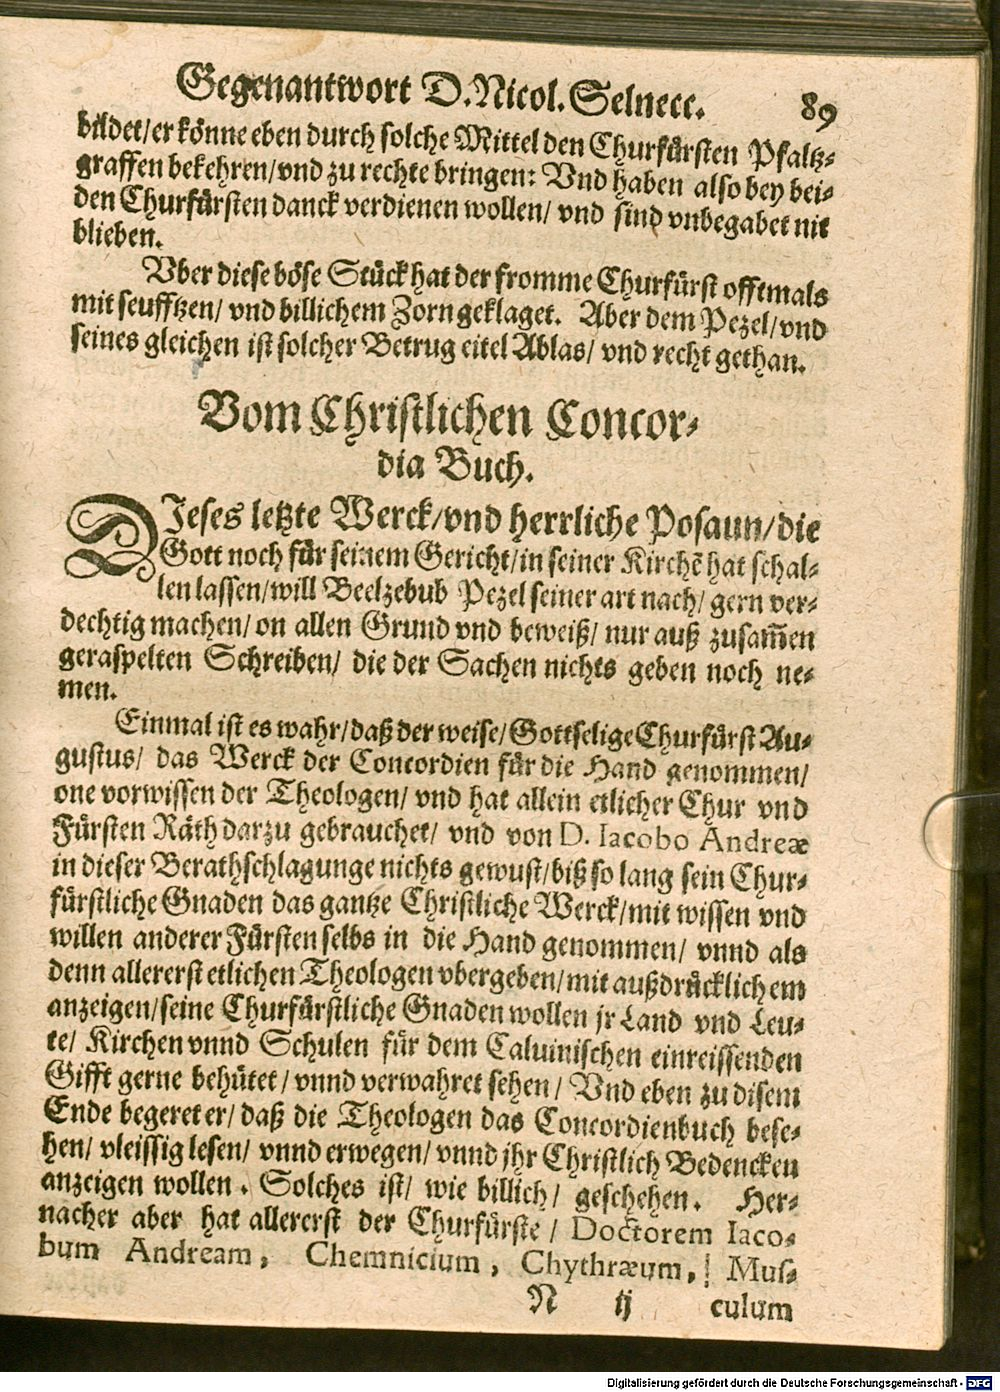 Gegenantwort D. Nicol. Selnecc. 89
bildet/er könne eben durch solche Mittel den Churfürsten Pfaltz-
graffen bekehren/vnd zu rechte bringen: Vnd haben also bey bei-
den Churfürsten danck verdienen wollen/ vnd sind vnbegabet nit
blieben.
Vber diese böse Stück hat der fromme Churfürst offtmals
mit seufftzen/ vnd billichem Zorn geklaget. Aber dem Pezel/vnd
seines gleichen ist solcher Betrug eitel Ablas/ vnd recht gethan.
Vom Christlichen Concor-
dia Buch.
DIeses letzte Werck/vnd herrliche Posaun/die
Gott noch für seinem Gericht/in seiner Kirchē hat schal-
len lassen/will Beelzebub Pezel seiner art nach/ gern ver-
dechtig machen/ on allen Grund vnd beweiß/ nur auß zusam̄en
geraspelten Schreiben/ die der Sachen nichts geben noch ne-
men.
Einmal ist es wahr/daß der weise/ Gottselige Churfürst Au-
gustus/ das Werck der Concordien für die Hand genommen/
one vorwissen der Theologen/ vnd hat allein etlicher Chur vnd
Fürsten Räth darzu gebrauchet/ vnd von D. Iacobo Andreæ
in dieser Berathschlagunge nichts gewust/biß so lang sein Chur-
fürstliche Gnaden das gantze Christliche Werck/mit wissen vnd
willen anderer Fürsten selbs in die Hand genommen/ vnnd als
denn allererst etlichen Theologen vbergeben/mit außdrücklichem
anzeigen/seine Churfürstliche Gnaden wollen jr Land vnd Leu-
te/ Kirchen vnnd Schulen für dem Caluinischen einreissenden
Gifft gerne behütet/ vnnd verwahret sehen/ Vnd eben zu disem
Ende begeret er/ daß die Theologen das Concordienbuch bese-
hen/ vleissig lesen/ vnnd erwegen/ vnnd jhr Christlich Bedencken
anzeigen wollen. Solches ist/ wie billich/ geschehen. Her-
nacher aber hat allererst der Churfürste/ Doctorem Iaco-
bum Andream, Chemnicium, Chythræum, Mus-
N ij culum
Digitalisierung gefördert durch die Deutsche Forschungsgemeinschaft - DFG